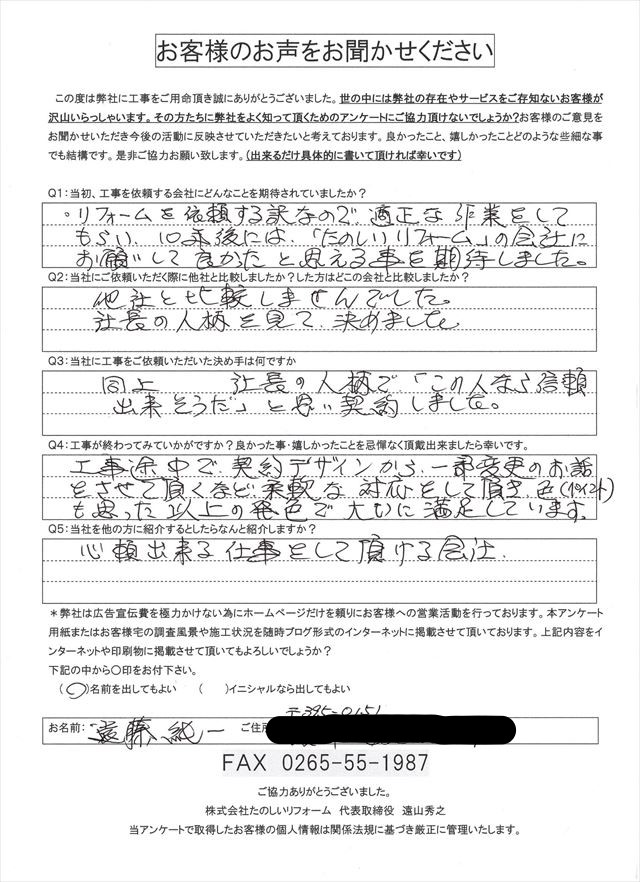 お客様のお声をお聞かせください
この度は弊社に工事をご用命頂き誠にありがとうございました。世の中には弊社の存在やサービスをご存知ないお客様が
沢山いらっしゃいます。その方たちに弊社をよく知って頂くためのアンケートにご協力頂けないでしょうか?お客様のご意見を
お聞かせいただき今後の活動に反映させていただきたいと考えております。良かったこと、嬉しかったことどのような些細な事
でも結構です。是非ご協力お願い致します。(出来るだけ具体的に書いて頂ければ幸いです)
Q1:当初、工事を依頼する会社にどんなことを期待されていましたか?
・リフォームを依頼する訳なので、適正な作業をして
もらい、10年後には、「たのしいリフォーム」の会社に
お願いして良かったと思える事を期待しました。
Q2:当社にご依頼いただく際に他社と比較しましたか?した方はどこの会社と比較しましたか?
他社と比較しませんでした。
社長の人柄を見て、決めました。
Q3:当社に工事をご依頼いただいた決め手は何ですか
同上 社長の人柄で「この人なら信頼
出来そうだ」と思い契約しました。
Q4:工事が終わってみていかがですか?良かった事・嬉しかったことを忌憚なく頂戴出来ましたら幸いです。
工事途中で、契約デザインから、一部変更のお話
をさせて頂くなど、柔軟な対応をして頂き、色(ペイント)
も思った以上の発色で大いに満足しています。
Q5:当社を他の方に紹介するとしたらなんと紹介しますか?
心頼出来る仕事をして頂ける会社.
*弊社は広告宣伝費を極力かけない為にホームページだけを頼りにお客様への営業活動を行っております。本アンケート
用紙またはお客様宅の調査風景や施工状況を随時ブログ形式のインターネットに掲載させて頂いております。上記内容をイ
ンターネットや印刷物に掲載させて頂いてもよろしいでしょうか?
下記の中から〇印をお付下さい。
(〇)名前を出してもよい ( )イニシャルなら出してもよい
〒395-0151
お名前: 遠藤純一 ご住所
FAX 0265-55-1987
ご協力ありがとうございました。
株式会社たのしいリフォーム 代表取締役 遠山秀之
当アンケートで取得したお客様の個人情報は関係法規に基づき厳正に管理いたします。